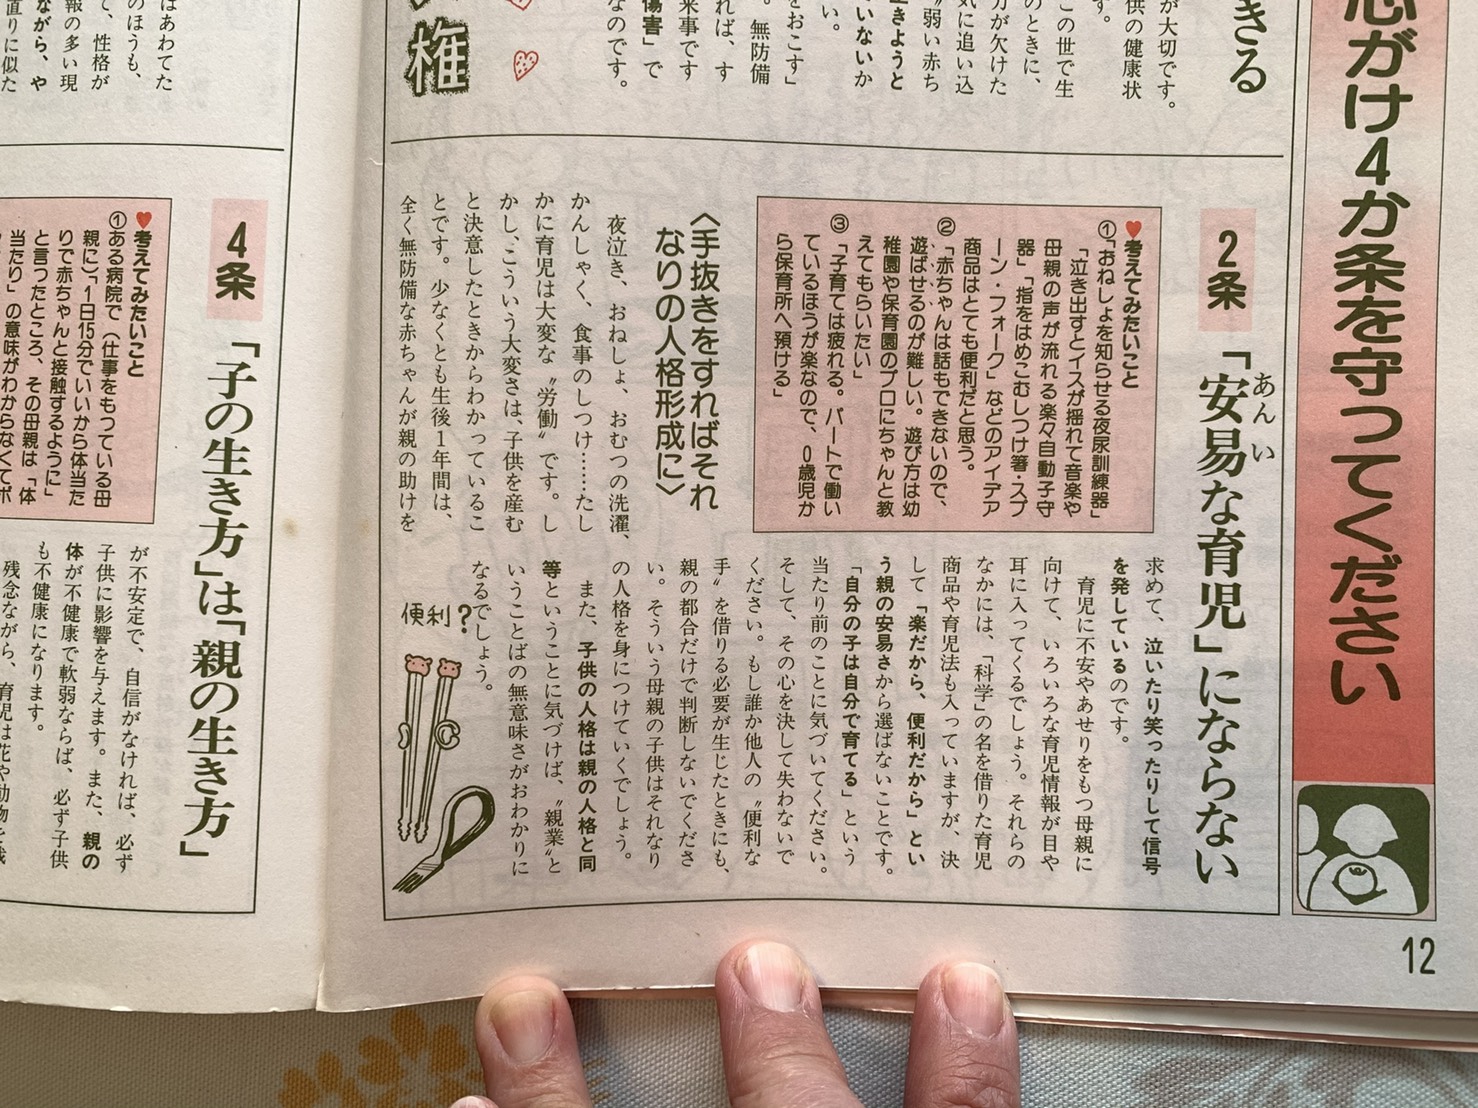 心がけ4か条を守ってください
きる
が大切です。
供の健康状
す。
この世で生
のときに、
力が欠けた
気に追い込
〝弱い赤ち
生きようと
ていないか
い。
をおこす」
。無防備
れば、す
来事です
傷害」で
なのです。
権
2条
「安易な育児」にならない
あん い
♥考えてみたいこと
①「おねしょを知らせる夜尿訓練器」
「泣き出すとイスが揺れて音楽や
母親の声が流れる楽々自動子守
器」「指をはめこむしつけ箸・スプ
ーン・フォーク」などのアイデア
商品はとても便利だと思う。
②「赤ちゃんは話もできないので、
遊ばせるのが難しい。遊び方は幼
稚園や保育園のプロにちゃんと教
えてもらいたい」
③「子育ては疲れる。パートで働い
ているほうが楽なので、0歳児か
ら保育所へ預ける」
〈手抜きをすればそれ
なりの人格形成に〉
夜泣き、おねしょ、おむつの洗濯、
かんしゃく、食事のしつけ……たし
かに育児は大変な〝労働〟です。し
かし、こういう大変さは、子供を産む
と決意したときからわかっているこ
とです。少なくとも生後1年間は、
全く無防備な赤ちゃんが親の助けを
求めて、泣いたり笑ったりして信号
を発しているのです。
育児に不安やあせりをもつ母親に
向けて、いろいろな育児情報が目や
耳に入ってくるでしょう。それらの
なかには、「科学」の名を借りた育児
商品や育児法も入っていますが、決
して「楽だから、便利だから」とい
う親の安易さから選ばないことです。
「自分の子は自分で育てる」という
当たり前のことに気づいてください。
そして、その心を決して失わないで
ください。もし誰か他人の〝便利な
手〟を借りる必要が生じたときにも、
親の都合だけで判断しないでくださ
い。そういう母親の子供はそれなり
の人格を身につけていくでしょう。
また、子供の人格は親の人格と同
等ということに気づけば、〝親業〟と
いうことばの無意味さがおわかりに
なるでしょう。
便利?
12
はあわてた
のほうも、
て、性格が
報の多い現
ながら、や
直りに似た
4条
「子の生き方」は「親の生き方」
♥考えてみたいこと
①ある病院で(仕事をもっている母
親に)、「1日15分でいいから体当た
りで赤ちゃんと接触するように」
と言ったところ、その母親は「体
当たり」の意味がわからなくてボ
が不安定で、自信がなければ、必ず
子供に影響を与えます。また、親の
体が不健康で軟弱ならば、必ず子供
も不健康になります。
残念ながら、育児は花や動物を